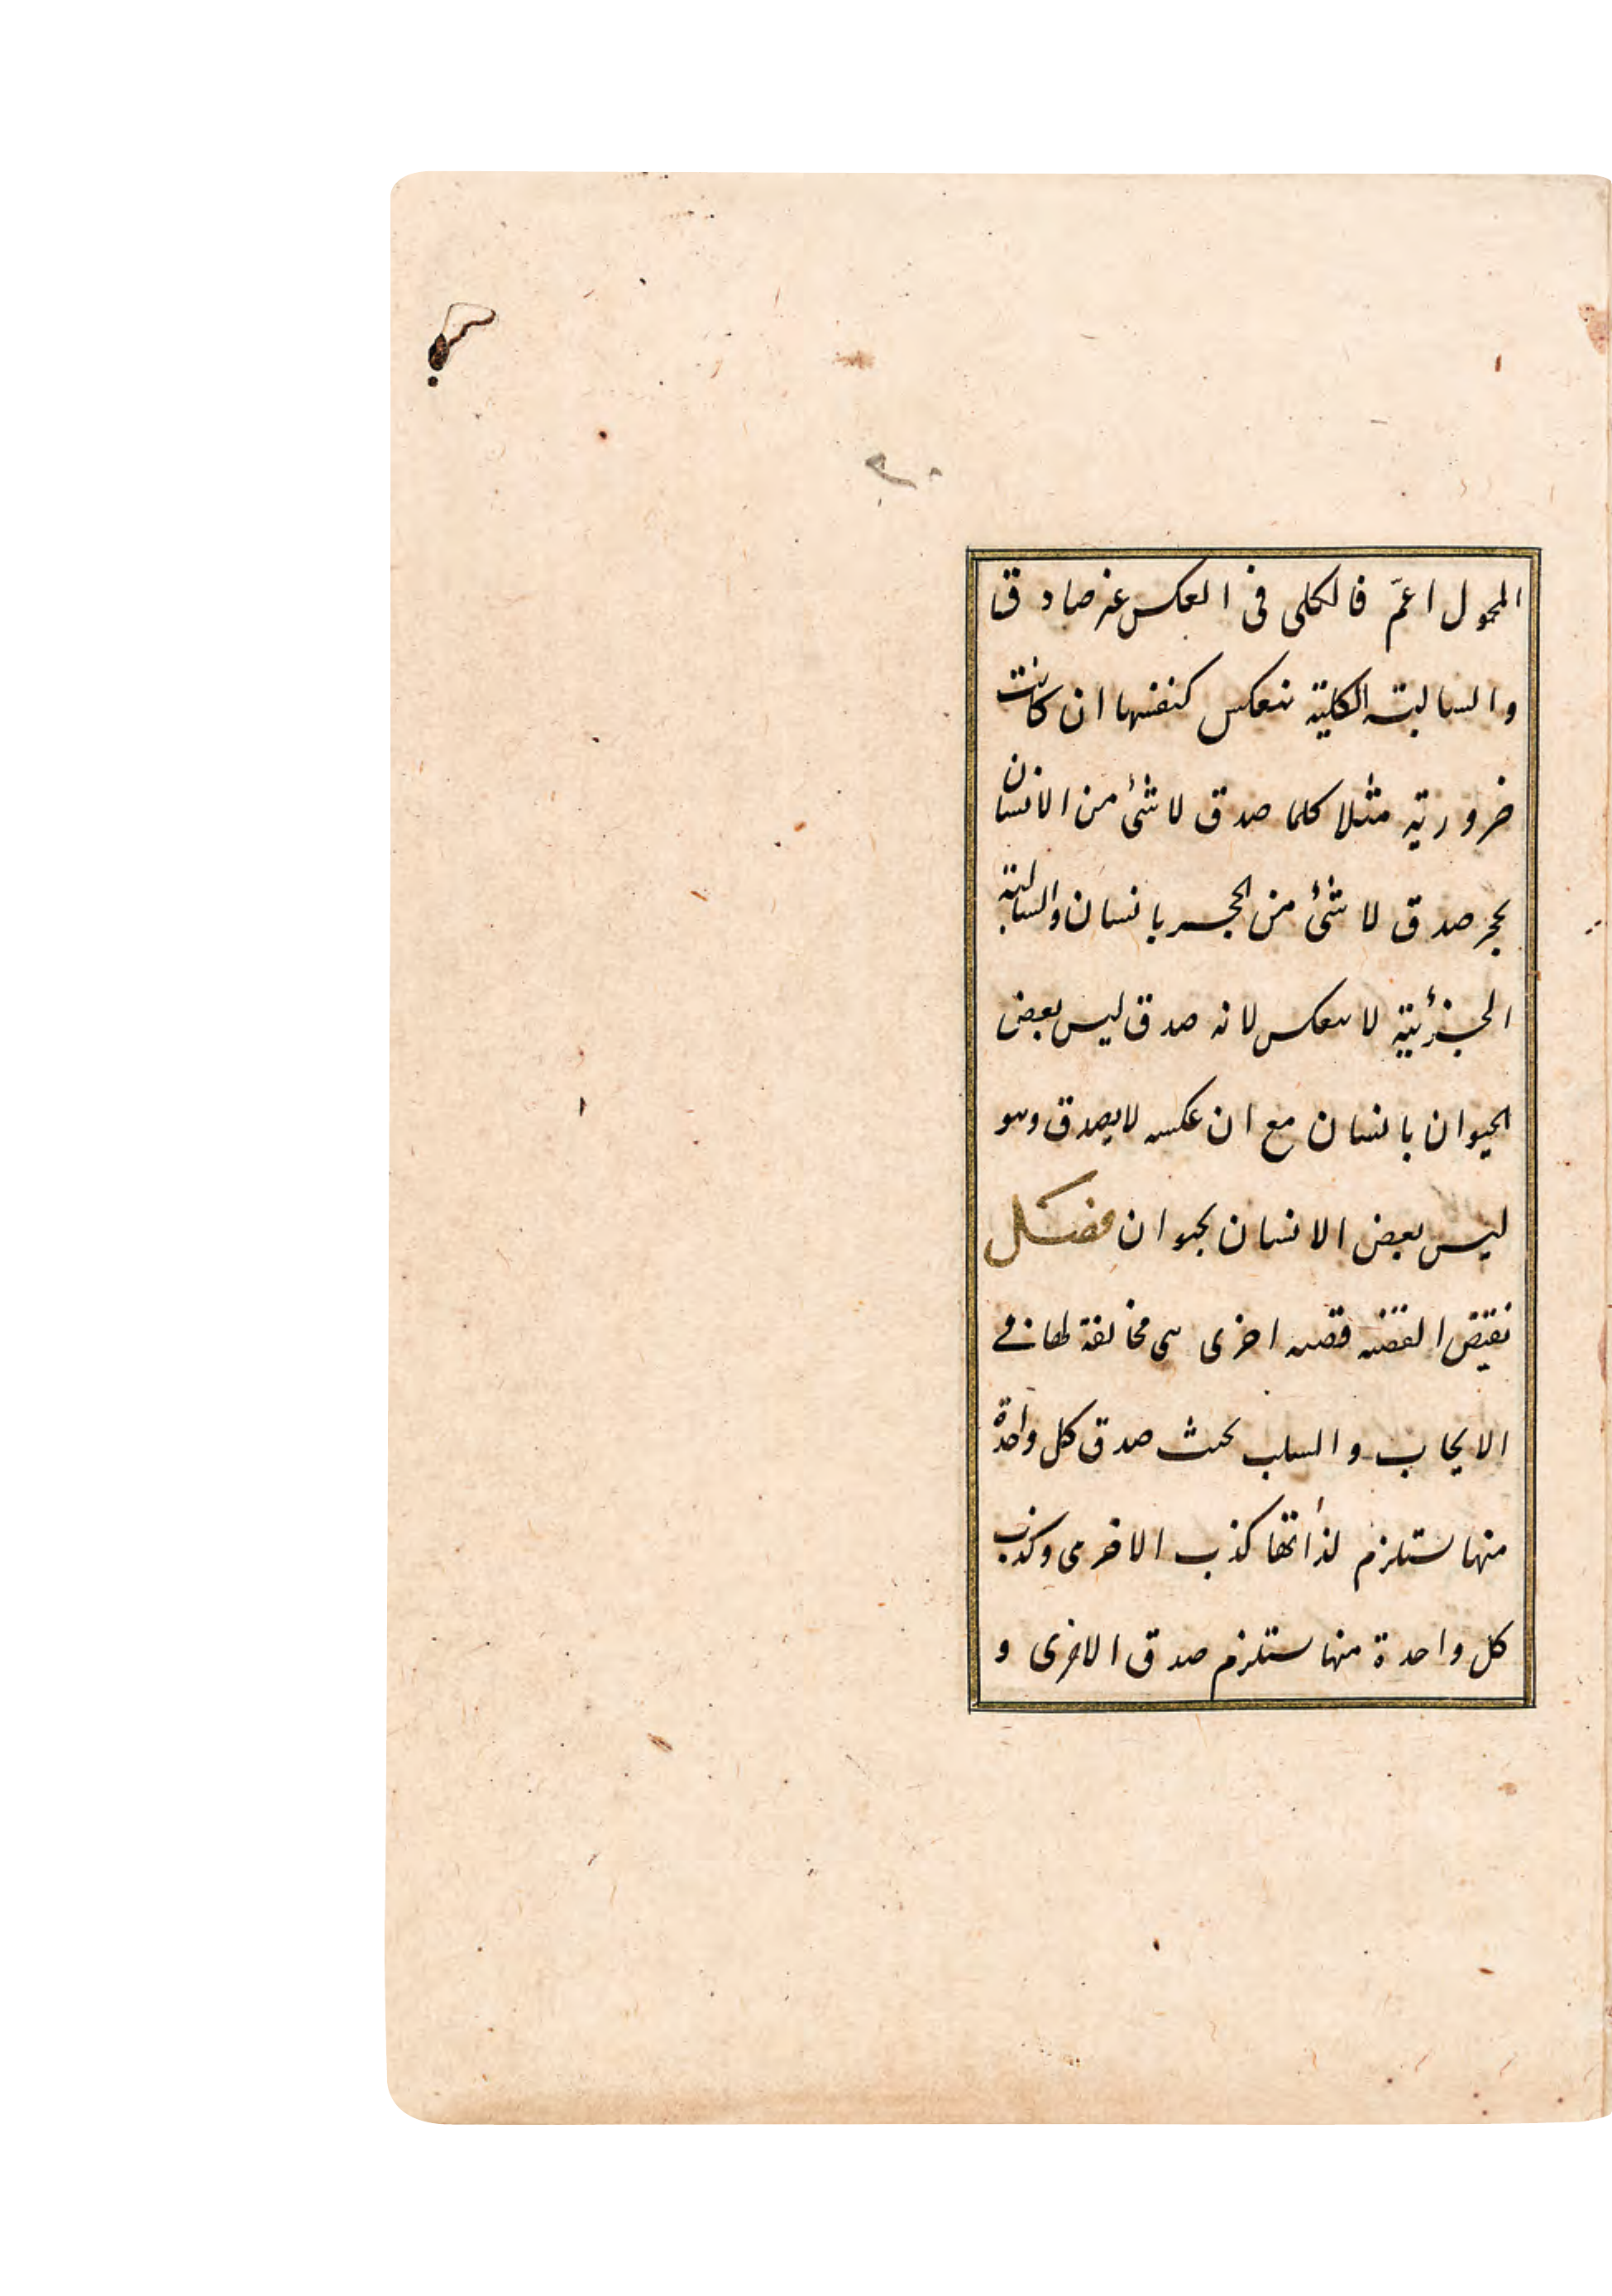 المحمول اعمّ فالكلى فى العكس غير صادق
والسالبة الكلية تنعكس كنفسها ان كانت
ضرورية مثلا كلما صدق لا شئ من الانسان
بحجر صدق لا شئ من الحجر بانسان والسالبة
الجزئية لا تنعكس لانه صدق ليس بعض
الحيوان بانسان مع ان عكسه لا يصدق وهو
ليس بعض الانسان بحيوان فصل
نقيض القضية قضية اخرى هى مخالفة لها فى
الايجاب والسلب بحيث صدق كل واحدة
منها يستلزم لذاتها كذب الاخرى وكذب
كل واحدة منها يستلزم صدق الاخرى و